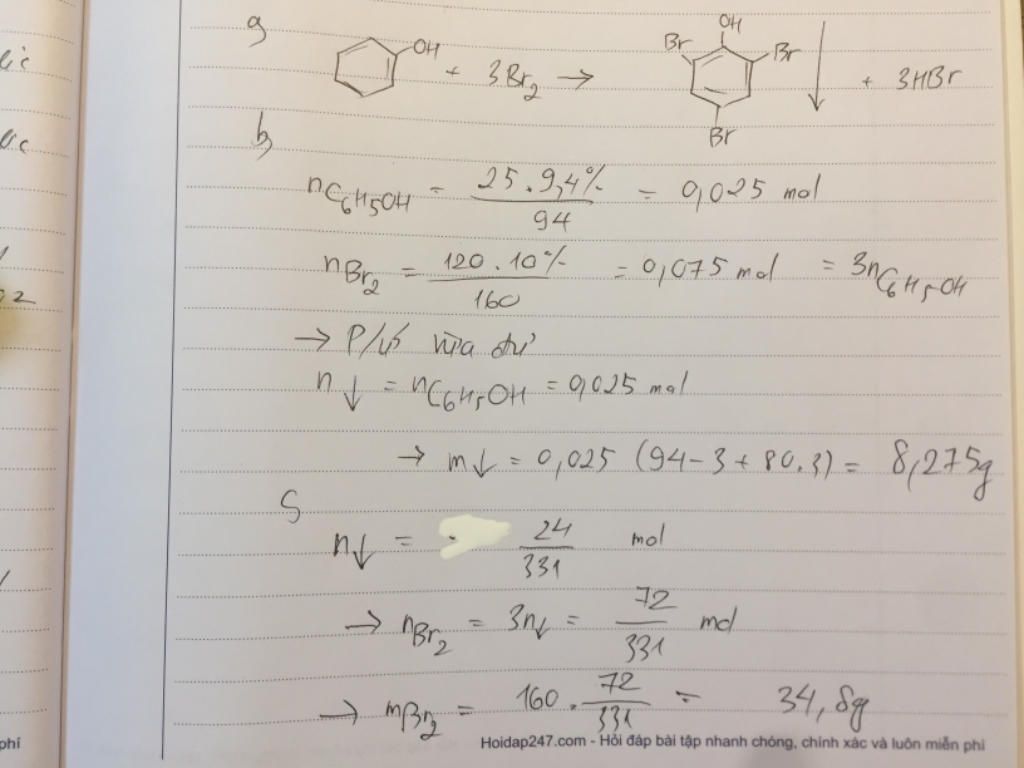 a)
OH + 3Br₂ → OH Br Br Br ↓ + 3HBr
b)
nC₆H₅OH = 25.9,4% / 94 = 0,025 mol
nBr₂ = 120.10% / 160 = 0,075 mol = 3nC₆H₅OH
→ P/ứ vừa đủ
n↓ = nC₆H₅OH = 0,025 mol
→ m↓ = 0,025 (94-3+80.3) = 8,275g
c)
n↓ = 24/331 mol
→ nBr₂ = 3n↓ = 72/331 mol
→ mBr₂ = 160 . 72/331 = 34,8g
phí
Hoidap247.com - Hỏi đáp bài tập nhanh chóng, chính xác và luôn miễn phí